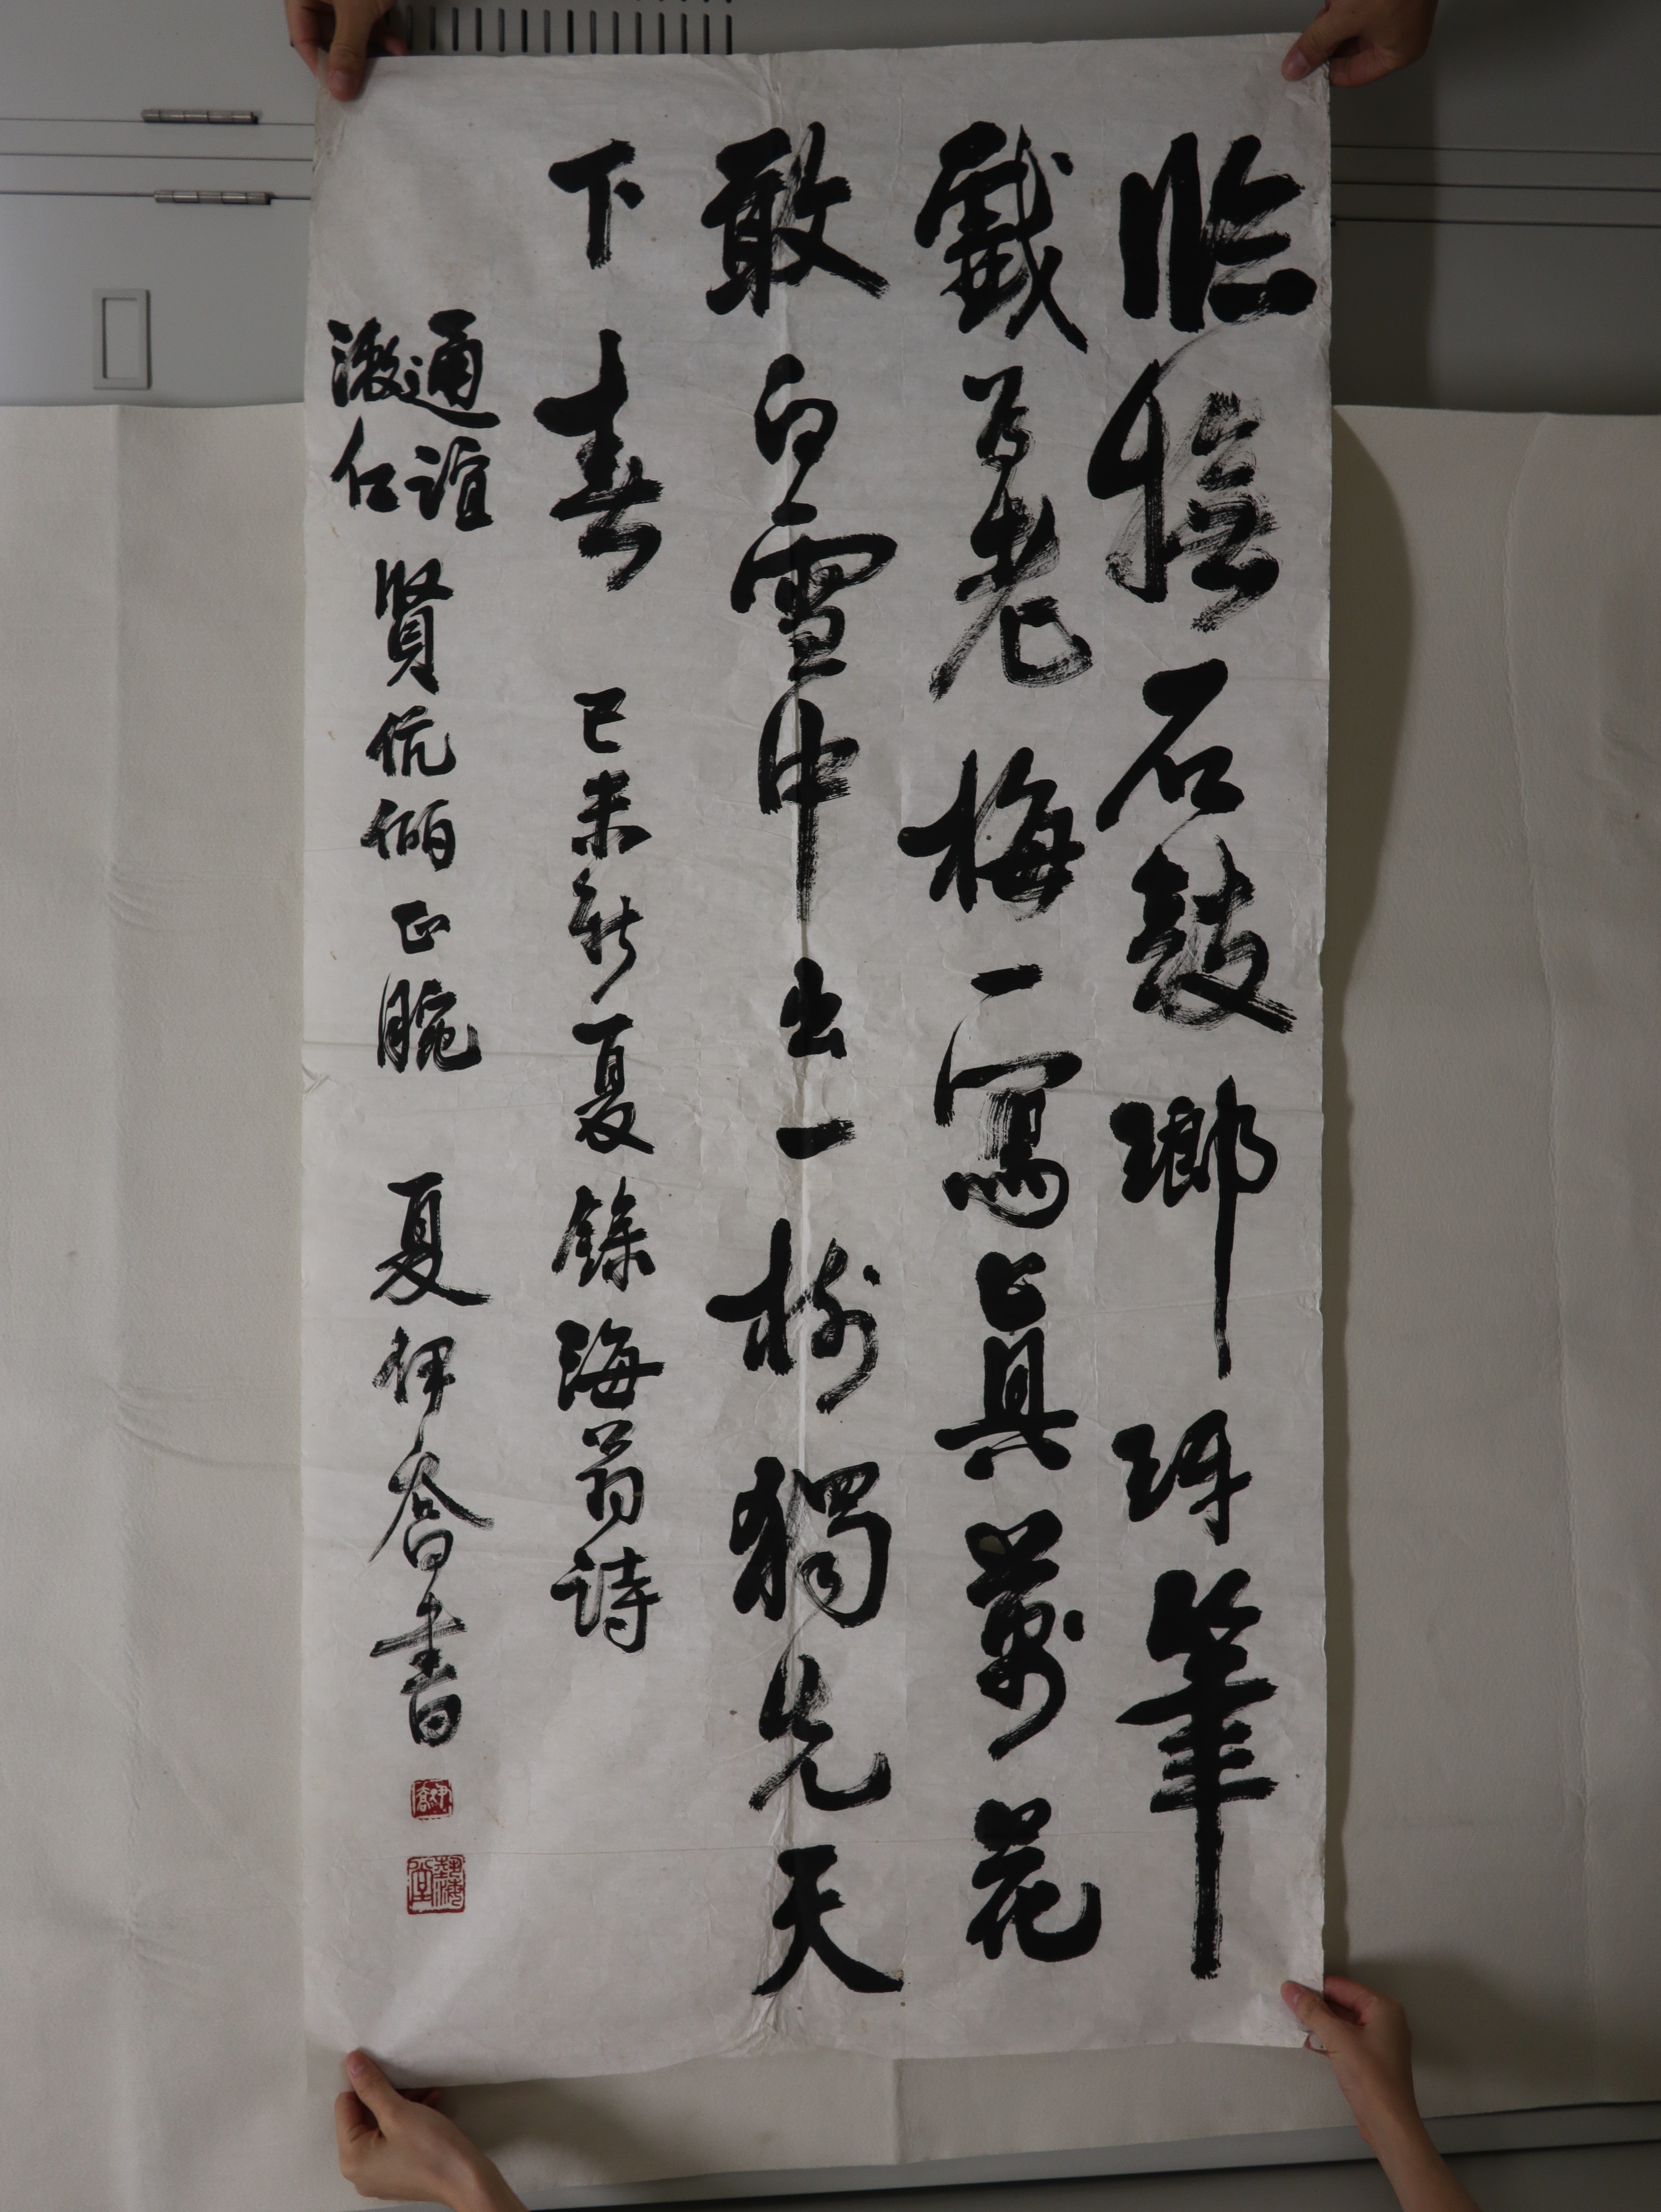 临橅石鼓瑯玡筆
戲爲老梅一寫真萬花
敢向雪中出一樹獨先天
下春 己未新夏録海翁诗
通谊
澂仁
賢伉俪正腕 夏伊喬書